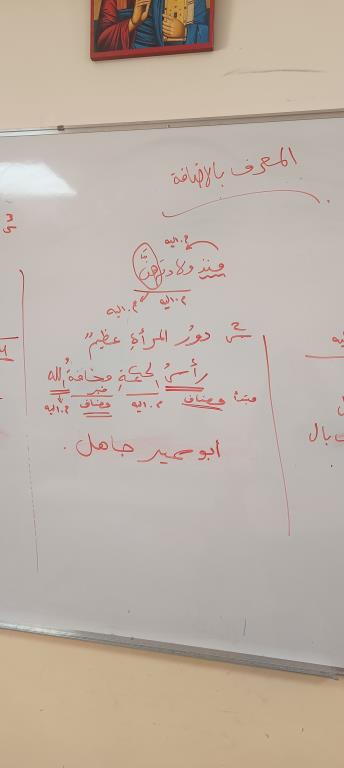 المعرف بالإضافة
م.اليه
منذ ولادتهنَّ
م.اليه م.اليه
دورُ المرأةِ عظيمٌ
رأسُ الحكمةِ مخافةُ الله
مبتدأ ومضاف م.اليه خبر ومضاف م.اليه
أبو سمير جاهل.
3
يه
بال